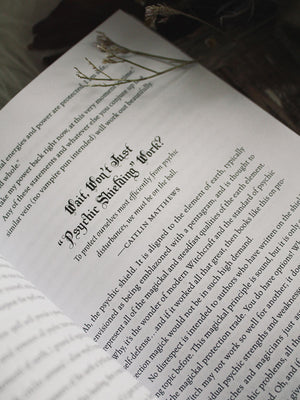 al energies and power are protected,
my power back right now, at this very moment
whole."
Any of these statements and whatever else you conjure up
similar vein (no vampire pun intended) will work out beautifully.
Wait, Won't Just
"Psychic Shielding" Work?
To protect ourselves most efficiently from psychic
disturbances, we must be on the ball.
—CAITLIN MATTHEWS
Ah, the psychic shield. It is aligned to the element of earth, typically
envisioned as being emblazoned with a pentagram, and is thought to
represent all of the magickal and steadfast qualities of the earth element.
Why, it's the wonder of modern Witchcraft and the standard of psychic
self-defense... and if it worked all that great, then books like this on
tection magick would not be in such high demand.
No disrespect is intended to authors who have written on the
ing topic before. This magickal principle is sound, but it is only
the magickal protection trade. You do have options!
itch may not work so well for another, it
dual psychic strengths and weaknesses
ches and magicians just
psychic problems, all
Oh,